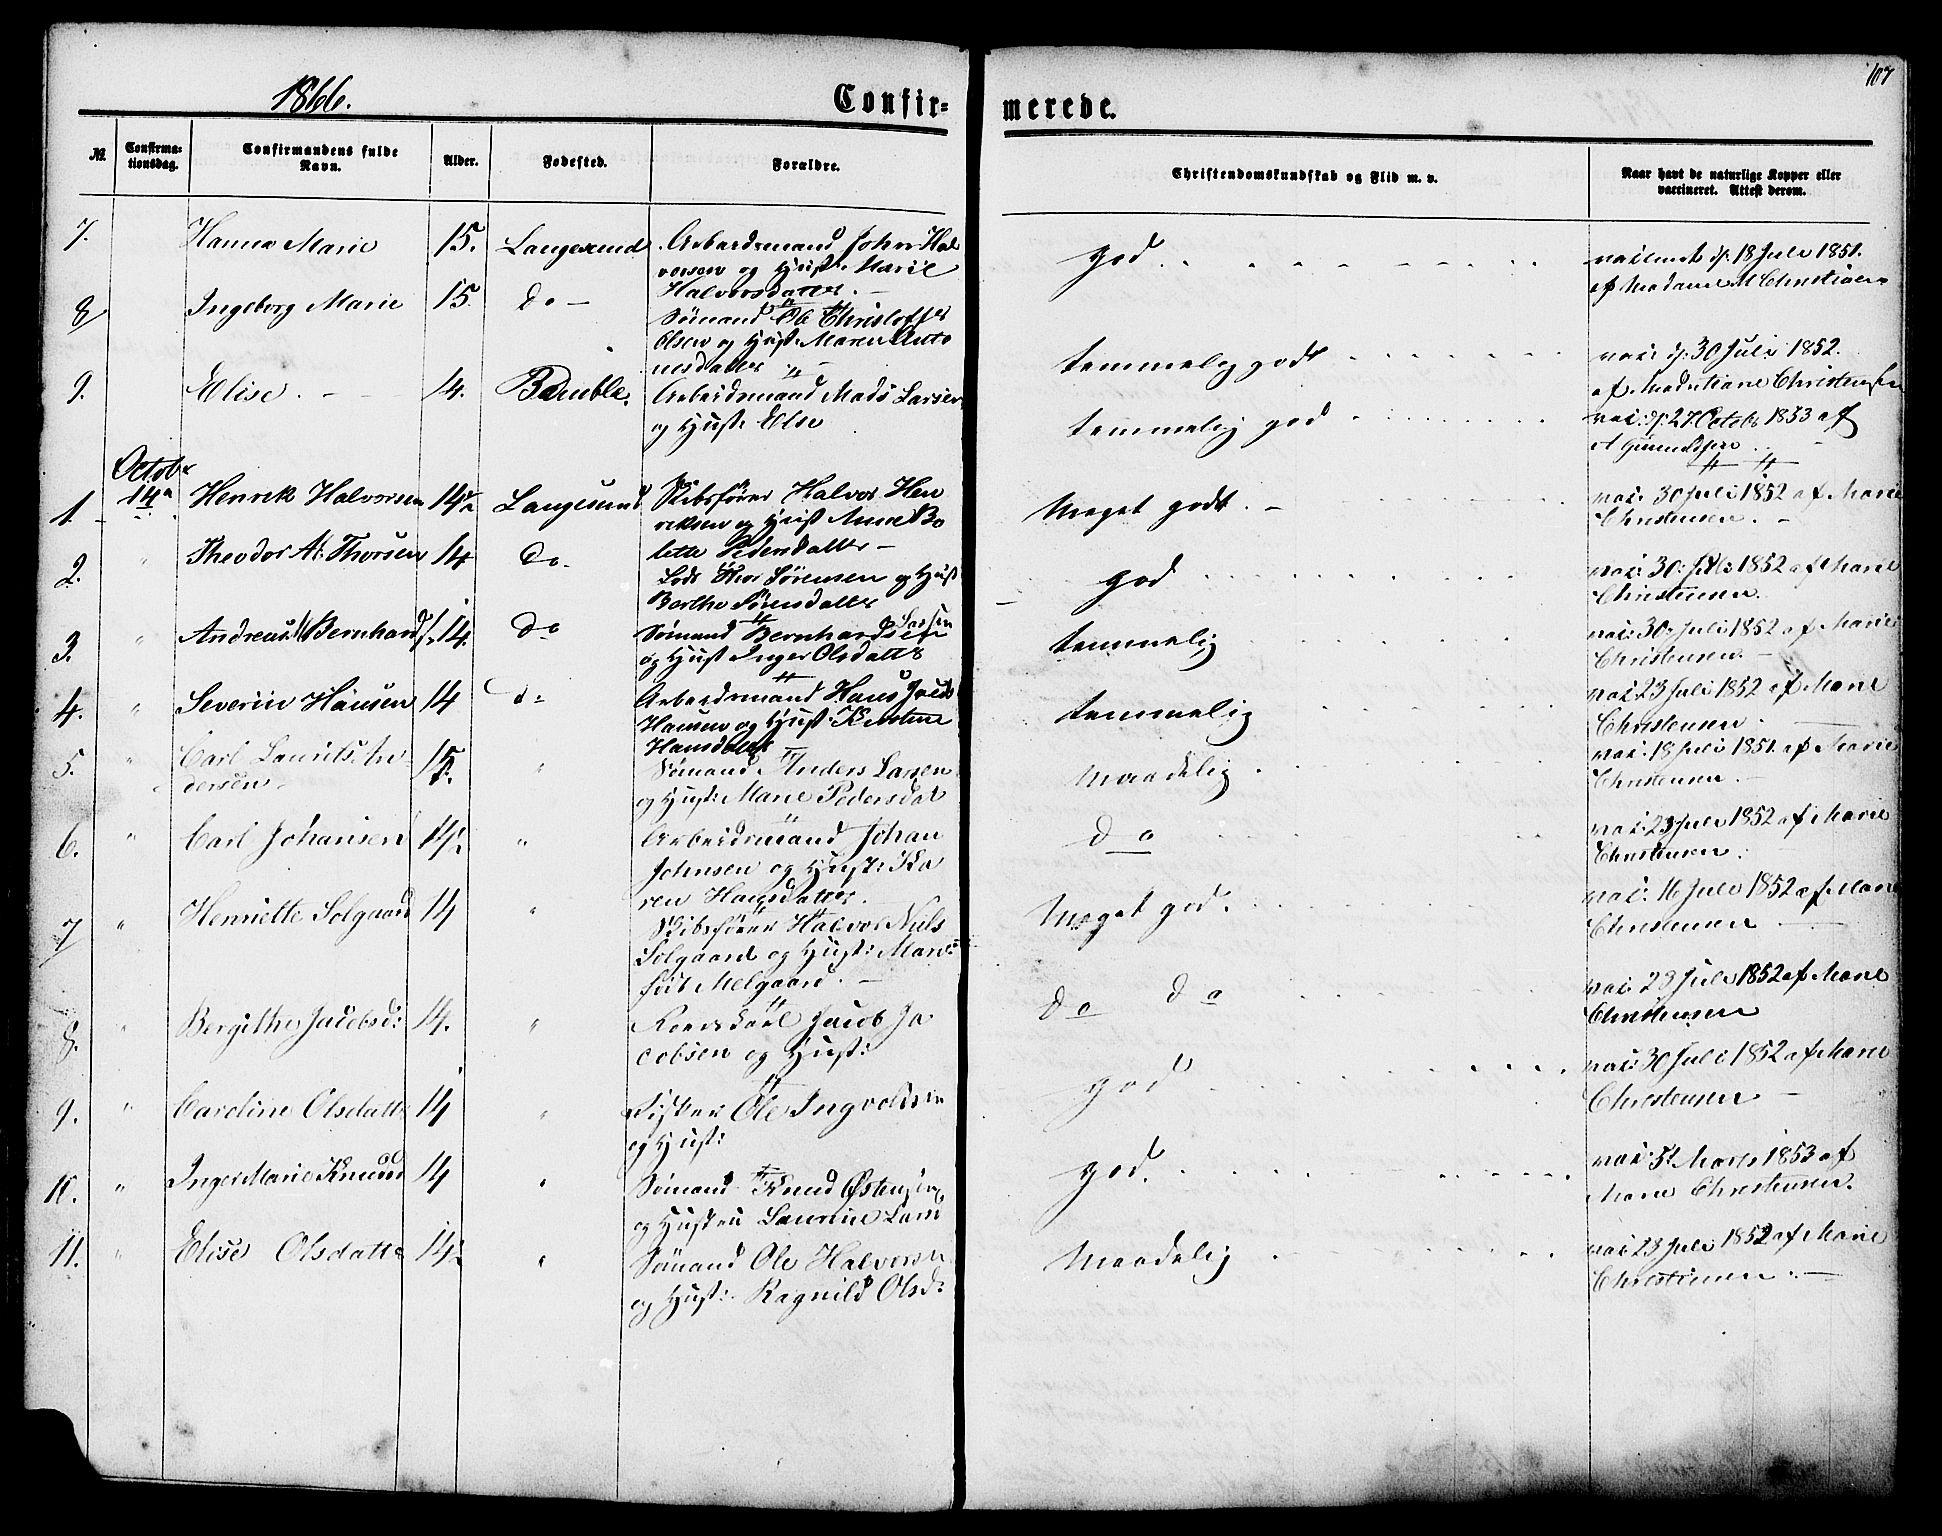 1866.
Confirmerede.
107
№.
Confirmationsdag.
Confirmandens fulde Navn.
Alder.
Fødested.
Forældre.
Christendomskundskab og Flid m. v.
Naar havt de naturlige Kopper eller vaccineret. Attest derom.
7. Hanna Marie 15. Langesund Arbeidsmand John Hal
vorsen og Hust: Marie
Halvorsdatter. —
god. vaccineret d/: 18 Juli 1851.
af Madame M Christiaen
8 Ingeborg Marie 15. do — Sømand Ole Christoffer
Olsen og Hust: Maren
temmelig godt vac: d/: 30 Juli 1852.
af Mad: Christensen
9. Elise. 14. Bamble. Arbeidsmand Mads Larsen
og Hust: Else
temmelig god vac: d/: 27 Octobr 1853 af
Octobr
1. 14de Henrik Halvorsen 14 Langesund Skibsfører Halvor Hen
riksen og Hust Anne Bo
lette Pedersdatter —
Meget godt. — vac: 30 Juli 1852 af Marie
Christensen. —
2. " Theodor At: Thorsen 14 do. Lods Thor Sørensen og Hust
Berthe Sørensdatter
god vac: 30 Juli 1852 af Marie
Christensen.
3. " Andreas Bernhard 14. do Sømand Bernhard Larsen
og Hust Inger Olsdatter
temmelig vac: 30 Juli 1852 af Marie
Christensen. —
4. " Severin Hansen 14 do Arbeidsmand Hans Jacob
Hansen og Hust: Kirstine
Hansdatter
temmelig vac: 23 Juli 1852 af Marie
Christensen
5. " Carl Laurits An
dersen 15. " Sømand Anders Larsen
og Hust: Marie Pedersdat
Maadelig vac: 18 Juli 1851. af Marie
Christensen. —
6. " Carl Johansen 14 " Arbeidsmand Johan
Johnsen og Hust: Ka
ren Hansdatter.
do vac: 23 Juli 1852 af Marie
Christensen.
7 " Henriette Solgaard 14 " Skibsfører Halvor Niels
Solgaard og Hust: Maren
Melgaard. —
Meget god. vac: 16 Juli 1852 af Marie
Christensen
8. " Bergithe Jacobsd: 14. " Jacob Ja
cobsen og Hust:
do do vac: 23 Juli 1852 af Marie
Christensen
9. " Caroline Olsdatter 14 " Fisker Ole Ingvoldsen
og Hust:
god vac: 30 Juli 1852 af Marie
Christensen —
10. " Inger Marie Knuds 14 " Sømand Knud
og Hustru Laurine Lars
god. vac: Marts 1853 af
Marie Christensen.
11. " Elise Olsdatter 14 " Sømand Ole Halvorsen
og Hust: Ragnild Olsd:
Maadelig vac: 23 Juli 1852 af Marie
Christensen. —